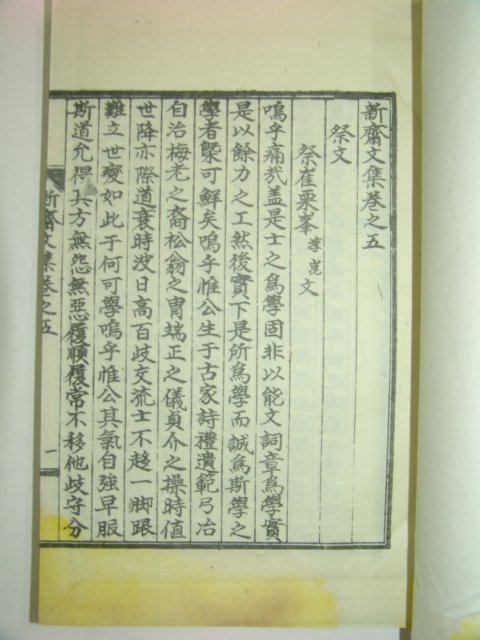 新齋文集卷之五
祭文
祭崔栗峯孝崑文
嗚乎痛哉盖是士之爲學固非以能文詞章爲學實
是以餘力之工然後實下是所爲學而誠爲斯學之
學者槩可鮮矣嗚乎惟公生于古家詩禮遺範弓冶
自治梅老之裔松翁之冑端正之儀貞介之操時值
世降亦際道衰時波日高百歧交流士不趍一脚跟
難立世變如此于何可學嗚乎惟公其氣自強早服
斯道允得其方無怨無惡履順履常不移他歧守分
新齋文集卷之五
一